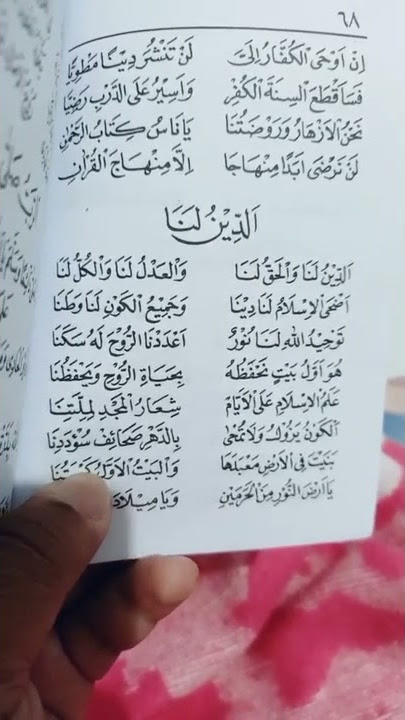 ٦٨
اِنْ اَوْحَى الْكُفَّارُ اِلَىَّ لَنْ تَنْشُرَ دِيْنًا مَطْوِيًّا
فَسَاَقْطَعُ اَلْسِنَةَ الْكُفْرِ وَاَسِيْرُ عَلَى الدَّرْبِ رَضِيًّا
نَحْنُ الْاَزْهَارُ وَرَوْضَتُنَا يَا نَاسُ كِتَابُ الرَّحْمٰنِ
لَنْ نَرْضٰى اَبَدًا مِنْهَاجًا اِلَّا مِنْهَاجَ الْقُرْاٰنِ
اَلدِّيْنُ لَنَا
اَلدِّيْنُ لَنَا وَالْحَقُّ لَنَا وَالْعَدْلُ لَنَا وَالْكُلُّ لَنَا
اَضْحَى الْاِسْلَامُ لَنَا دِيْنًا وَجَمِيْعُ الْكَوْنِ لَنَا وَطَنًا
تَوْحِيْدُ اللهِ لَنَا نُوْرٌ اَعْدَدْنَا الرُّوْحَ لَهُ سَكَنًا
هُوَ اَوَّلُ بَيْتٍ نَحْفَظُهُ بِحَيَاةِ الرُّوْحِ وَيَحْفَظُنَا
عَلَمُ الْاِسْلَامِ عَلَى الْاَيَّامِ شِعَارُ الْمَجْدِ لِمِلَّتِنَا
اَلْكَوْنُ يَزُوْلُ وَلَا تُمْحٰى بِالدَّهْرِ صَحَائِفُ سُؤْدَدِنَا
بُنِيَتْ فِى الْاَرْضِ مَعَبَدَهَا وَالْبَيْتُ الْاَوَّلُ
يَا اَرْضَ النُّوْرِ مِنَ الْحَرَمَيْنِ وَيَا مِيْلَادَ